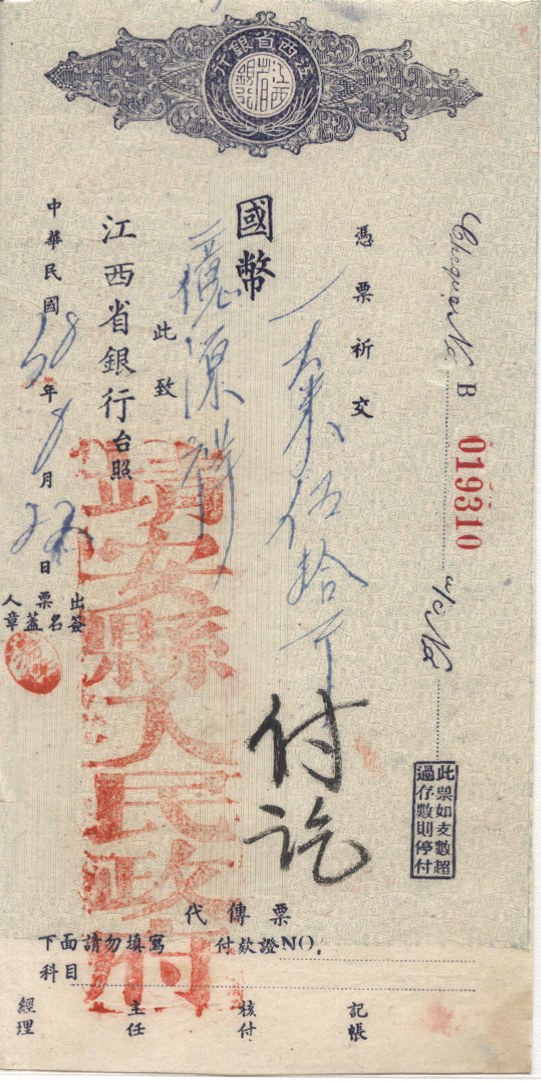 江西省銀行
江西省銀行
Cheque No B 019310
a/c No
此票如支數超
過存數則停付
憑票祈交
國幣
此致
江西省銀行台照
中華民國38年9月22日
出票人
簽名蓋章
靖安縣人民政府
付訖
代傳票
下面請勿填寫 付欵證NO.
科目
記帳
核付
主任
經理